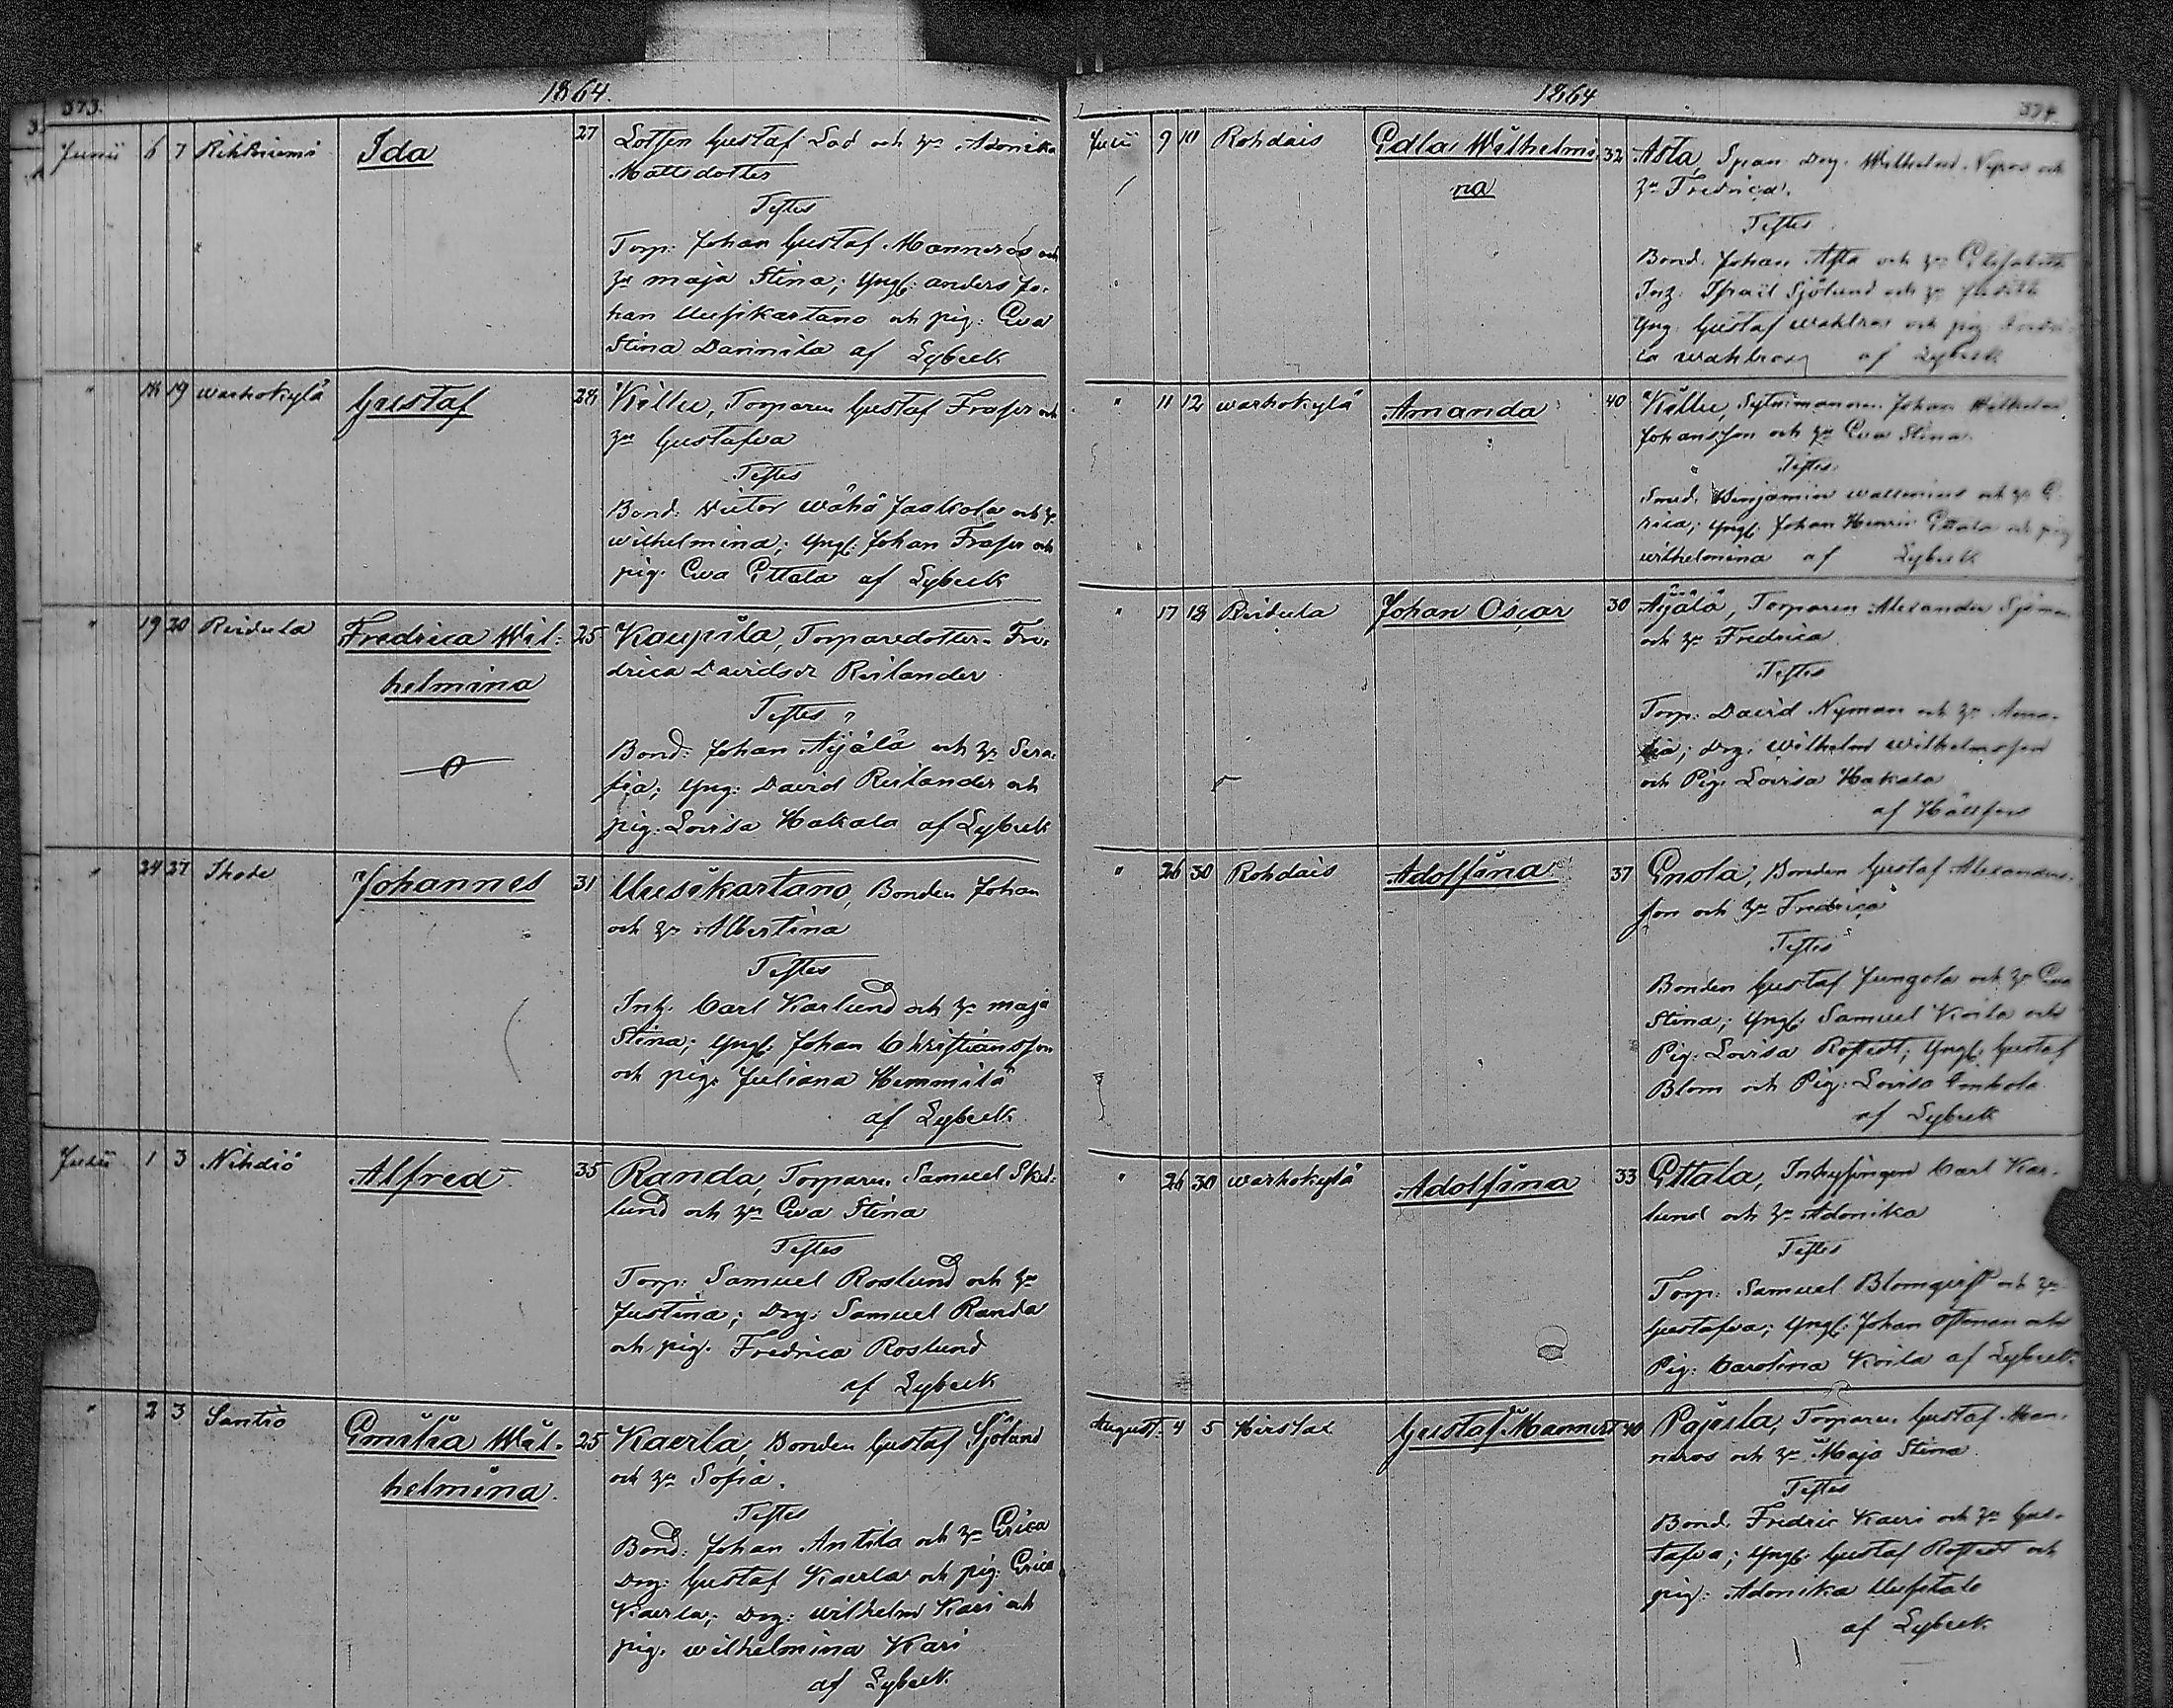 373.
1864.
Junii 6 7 Rihkniemi Ida 27 Lotsen Gustaf Lod och hu Adonika
Mattsdotter
Testes
Torp: Johan Gustaf Manneros och
hu maja Stina; yngl: anders Jo-
han Uusikartano och pig: Eva
Stina Dannila af Lybeck
" 18 19 warhokylä Gustaf 28 Killu, Torparen Gustaf Fraser och
hu Gustafva
Testes
Bond: Victor wähä Jaakola och hu
wilhelmina; yngl: Johan Fraser och
pig. Eva Ettala af Lybeck
" 19 20 Reidula Fredrica Wil- 25 Kaupila, Torparedotter Fre-
helmina drica Davidsdr Reilander
Testes
Bond: Johan Äijälä och hu Sera-
fia; yng: David Reilander och
pig: Lovisa Hakala af Lybeck
" 24 27 Ihode Johannes 31 Uusikartano, Bonden Johan
och hu Albertina
Testes
Inh. Carl Karlund och hu maja
Stina; yngl: Johan Christiansson
och pig. Juliana Hemmilä
af Lybeck
Julii 1 3 Nihdiö Alfred 35 Randa, Torparen Samuel Sked-
lund och hu Eva Stina
Testes
Torp: Samuel Roslund och hu
Justina; Drg: Samuel Randa
och pig. Fredrica Roslund
af Lybeck
" 2 3 Santio Emilia Wil- 25 Kaerla, Bonden Gustaf Sjölund
helmina. och hu Sofia.
Testes
Bond: Johan Antila och hu Erica
Drg: Gustaf Kaerla och pig. Erica
Kaerla; Drg: wilhelm Kari och
pig. wilhelmina Kari
af Lybeck
1864
374.
Julii 9 10 Rohdais Edla Wilhelmi- 32 Asta, Span Drg. Wilhelm Nyroos och
na hu Fredrica.
Testes
Bond. Johan Asta och hu Elisabeth
Inh: Israil Sjölund och hu Judith
yng: Gustaf wahlros och pig
wahlroos af Lybeck
" 11 12 warhokylä Amanda 40 Killu, Johan Wilhelm
Johansson och hu Eva Stina.
Testes
Smed. Benjamin wallenius och hu E-
rica; yngl: Johan Henric Ettala och pig
wilhelmina af Lybeck
" 17 18 Reidula Johan Oscar 30 Äijälä, Torparen Alexander Sjöman
och hu Fredrica
Testes
Torp: David Nyman och hu Ama-
lia; Drg: Wilhelm wilhelmsson
och Pig. Lovisa Hakala
af Hällfors
" 26 30 Rohdais Adolfina 37 Enola, Bonden Gustaf Alexanders-
son och hu Fredrica
Testes
Bonden Gustaf Jungola och hu Eva
Stina; yngl: Samuel Koila och
Pig: Lovisa Rostedt; yngl: Gustaf
Blom och Pig: Lovisa Einhola
af Lybeck
" 26 30 warhokylä Adolfina 33 Ettala, Inhysingen Carl Kar-
lund och hu Adonika
Testes
Torp: Samuel Blomqvist och hu
Gustafva; yngl: Johan Östman och
Pig: Carolina Koila af Lybeck
August. 4 5 Hirslax Gustaf Mannert 40 Pajula, Torparen Gustaf Man-
neros och hu Maja Stina
Testes
Bond. Fredric Kaeri och hu Gus-
tafva; yngl: Gustaf Rostedt och
pig: Adonika Uusitalo
af Lybeck.